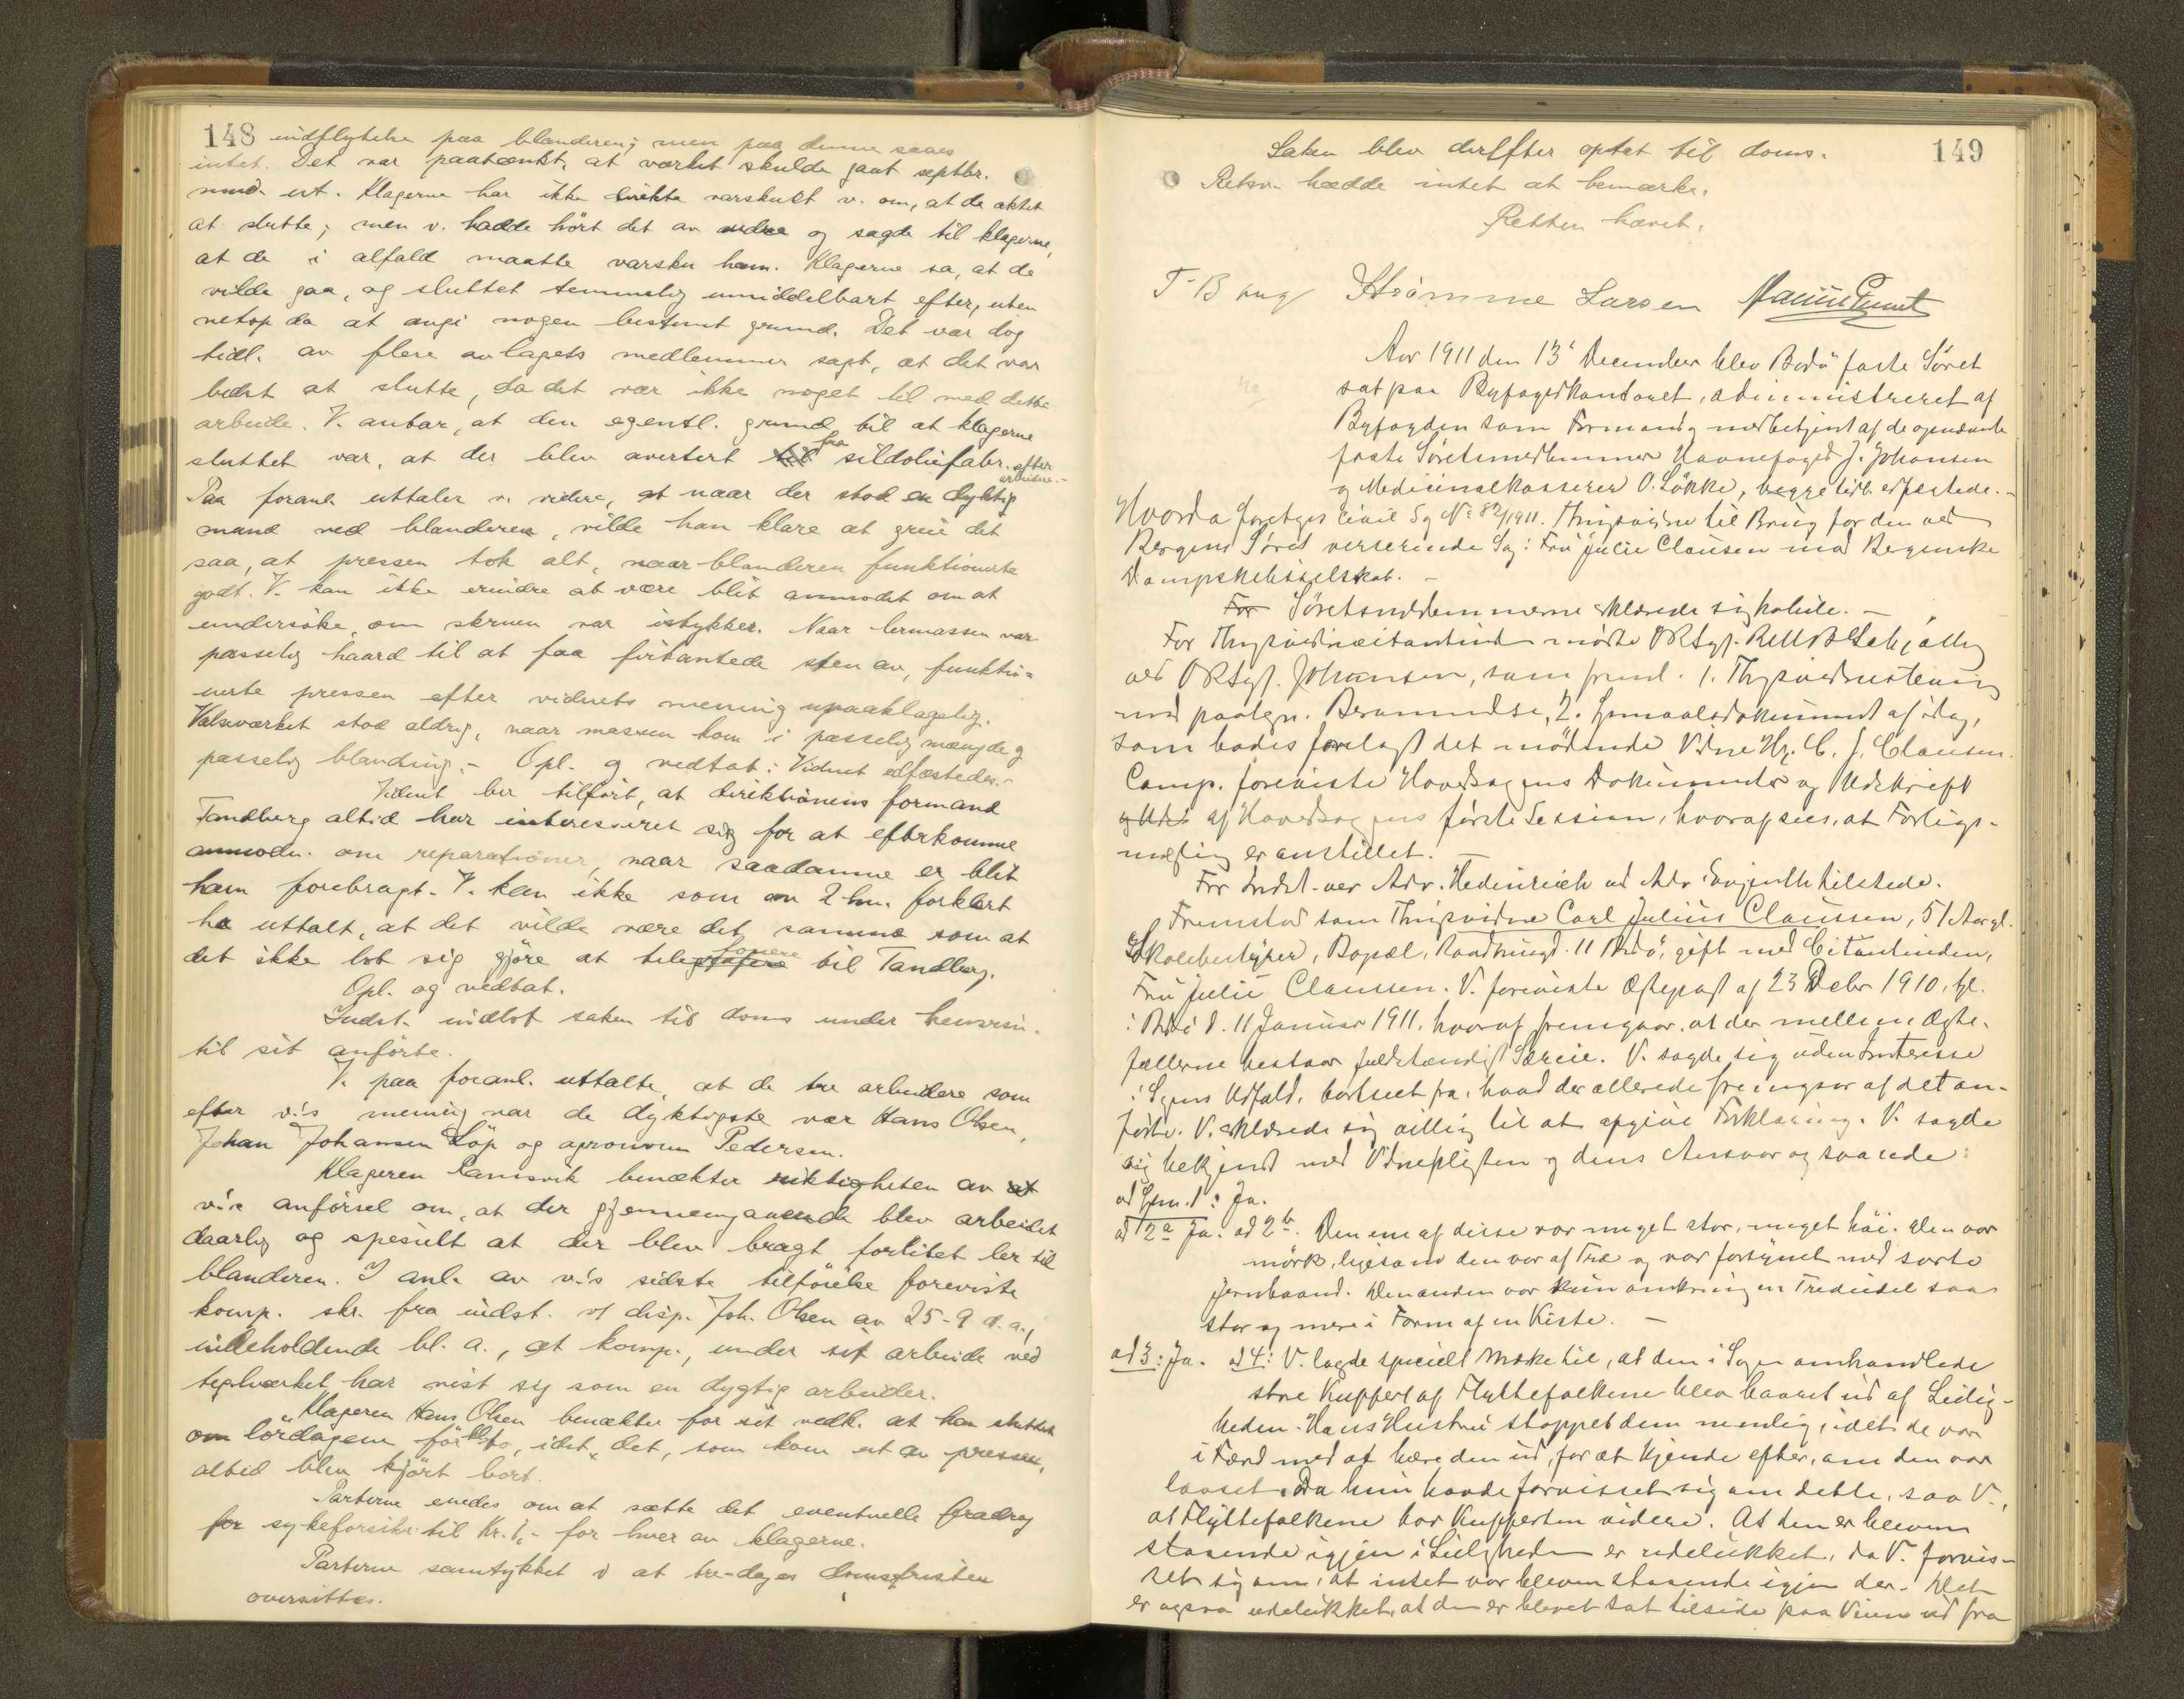 148 indflydelse paa blanderen; men paa denne saaes
intet. Det var paatænkt, at værket skulde gaat septbr.
mnd. ut. Klagerne har ikke direkte varskudt v. om, at de aktet
at slutte; men v. hadde hört det av andre og sagde til klagerne,
at de i alfald maatte varsku ham. Klagerne sa, at de
vilde gaa, og sluttet temmelig umiddelbart efter, uten
netop da at angi nogen bestemt grund. Det var dog
tidl. av flere av lagets medlemmer sagt, at det var
bedst at slutte, da det var ikke noget til med dette
arbeide. V. antar, at den egentl. grund til at klagerne
sluttet var, at der blev avertert til fra sildoliefabr. efter
arbeidere.-
Paa foranl. uttaler v. videre, at naar der stod en dyktig
mand ved blanderen, vilde han klare at greie det
saa, at pressen tok alt, naar blanderen funktionerte
godt. V. kan ikke erindre at være blit anmodet om at
undersöke, om skruen var istykker. Naar lermassen var
passelig haard til at faa firkantede sten av, funktio=
nerte pressen efter vidnets mening upaaklagelig.
Valseværket stod aldrig, naar massen kom i passelig mængde og
passelig blanding.- Opl. og vedtat: Vidnet edfæstedes.-
Vidnet ber tilfört, at direktionens formand
Tandberg altid har interesseret sig for at efterkomme
anmodn. om reparationer, naar saadanne er blit
ham forebragt. V. kan ikke som av 2 km. forklart
ha uttalt, at det vilde være det samme som at
det ikke lot sig gjöre at telegrafere fonere til Tandberg.
Opl. og vedtat.
Indst. indlot saken til doms under henvisn.
til sit anförte.
V. paa foranl. uttalte, at de tre arbeidere som
efter v.'s mening var de dyktigste var Hans Olsen,
Johan Johansen Löp og Pedersen.
Klageren Ramsvik benækter riktigheten av at
v.'s anförsel om, at der gjennemgaaende blev arbeidet
daarlig og spesielt at der blev bragt forlitet ler til
blanderen. I anl. av v.'s sidste tilförelse foreviste
komp. skr. fra indst. v/ disp. Joh. Olsen av 25-9 d.a.,
indeholdende bl. a., at komp., under sit arbeide ved
teglværket har vist sig som en dygtig arbeider.
Klageren Hans Olsen benækter for sit vedk. at han sluttet
om lördagene för kl. to, idet det, som kom ut av pressen,
altid blev kjört bort.
Parterne enedes om at sætte det eventuelle fradrag
for sykeforsikr. til Kr. 1,- for hver av klagerne.
Parterne samtykket i at tre-dages domsfristen
oversittes.
149
Saken blev derefter optat til doms.
Retsv. hadde intet at bemærke.
Retten hævet.
T. Bang Strömme Larsen
Aar 1911 den 13' December blev Bodö faste Söret
sat paa Byfogedkontoret, administreret af
Byfogden som Formand og medbetjent af de opnævnte
faste Söretsmedlemmer Havnefoged J. Johansen
og Medicinalkasserer O. Lökke, begge tidl. edfæstede.-
Hvorda foretoges Civil Sag No 82/1911. Thingsvidne til Brug for den ved
Bergens Söret verserende Sag: Fru Julie Clausen mod Bergenske
Dampskibsselskab. -
For Söretsmedlemmerne erklærede sig habile. -
For Thingsvidnecitantinden mödte ORSagf.
ved ORSagf. Johansen, som freml. 1. Thingsvidnestevning
med paategn. Berammelse, 2. Spörsmaalsdokument af idag,
som bades forelagt det mödende Vidne Hr. C. J. Clausen.
Comp. foreviste Hovedsagens Dokumenter og Udskrift
og Uds af Hovedsagens förste Session, hvoraf sees, at Forligs-
mægling er anstillet. -
For Indst. var Adv. Hedenreich ved Adv. tilstede.
Fremstod som Thingsvidne Carl Julius Claussen, 51 Aar gl.
Skolebestyrer, Bopæl, 11 Bodö, gift med Citantinden,
Fru Julie Claussen. V. foreviste Ægtepagt af 23 Decbr 1910, tgl.
i Bodö d. 11 Januar 1911, hvoraf fremgaar, at der mellem Ægte-
fællerne bestaar fuldstændigt Særeie. V. sagde sig uden Interesse
i Sagens Udfald, bortseet fra, hvad der allerede fremgaar af det an-
förte. V. erklærede sig villig til at afgive Forklaring. V. sagde
sig bekjendt med Vidnepligten og dens Ansvar og svarede:
ad Spm. 1: Ja.
ad 2a Ja. ad 2b. Den ene af disse var meget stor, meget höi. Den var
mörk, ligesom den var af Træ og var forsynet med sorte
Jernbaand. Den anden var kun omkring en Trediedel saa
stor og mere i Form af en Kiste. -
ad 3: Ja. ad 4: V. lagde specielt Mærke til, at den i Sagen omhandlede
store Kuffert af Flyttefolkene blev baaret ud af Leilig-
heden. Hans Hustru stoppet dem nemlig, idet de var
i Færd med at bære den ud, for at kjende efter, om den var
laaset. Da hun havde forvisset sig om dette, saa V.,
at Flyttefolkene bar Kufferten videre. At den er bleven
staaende igjen i Leiligheden er udelukket, da V. forvis-
set sig om, at intet var bleven staaende igjen der. Det
er ogsaa udelukket, at den er blevet sat tilside paa Veien ud fra